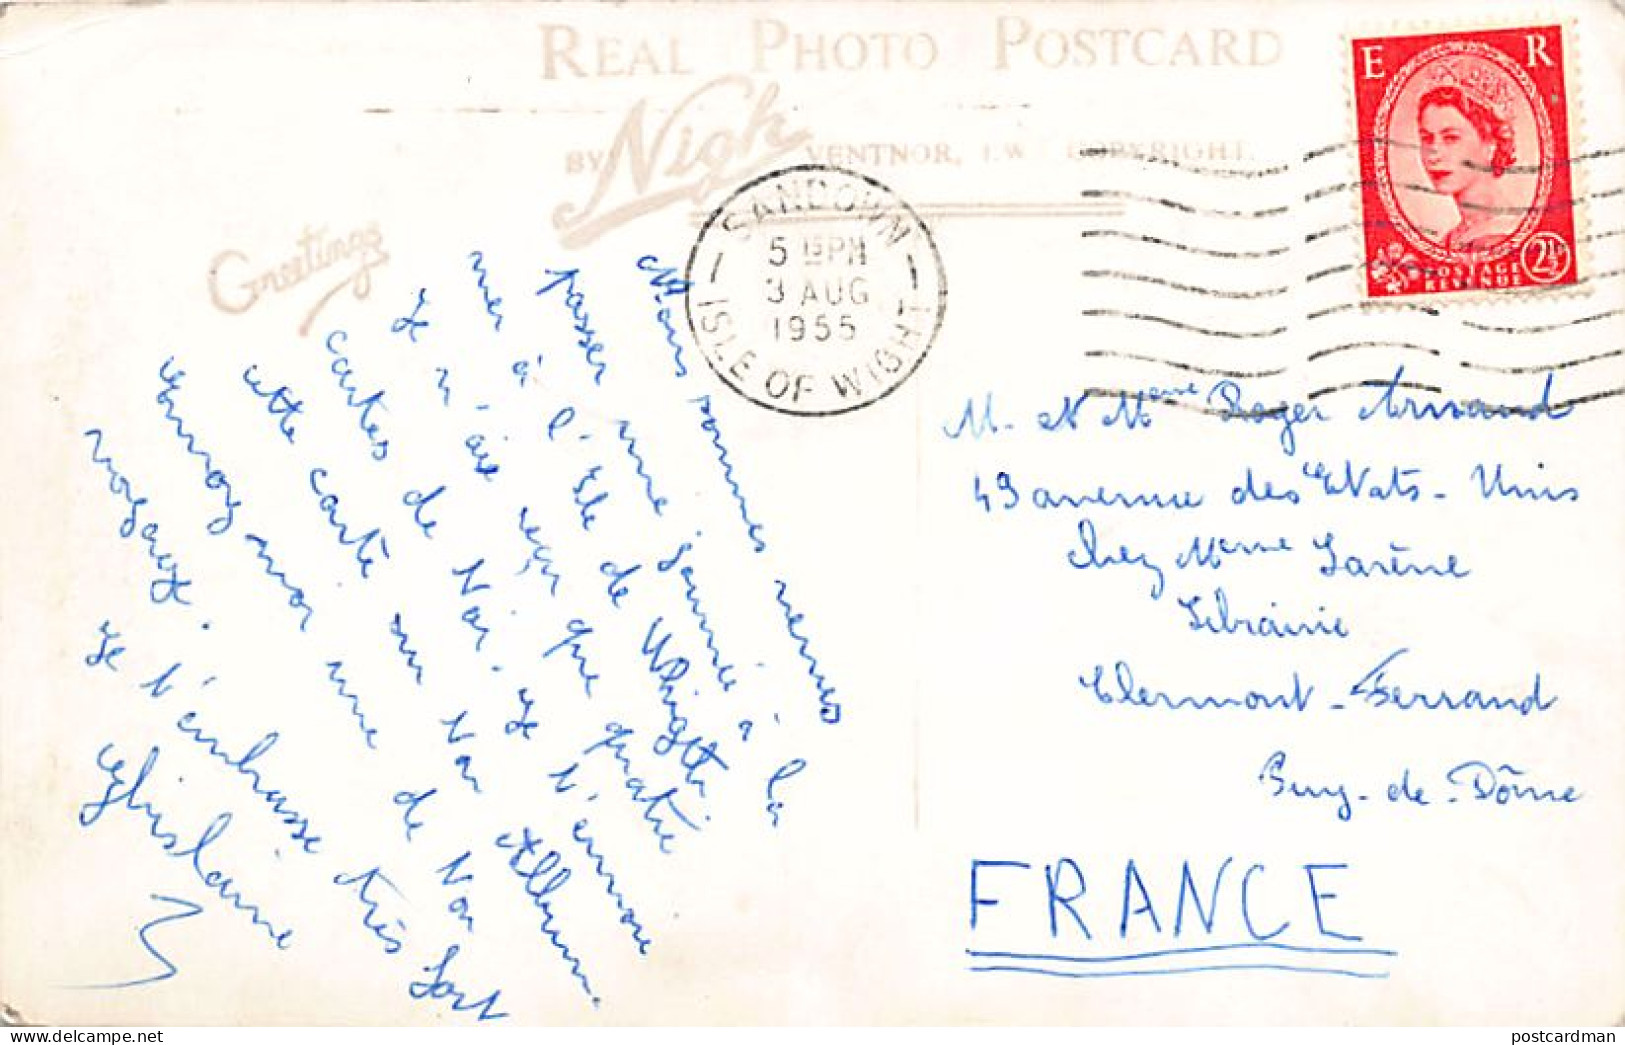 REAL PHOTO POSTCARD
BY Nigh VENTNOR, I.W. COPYRIGHT.
Greetings
E R
POSTAGE REVENUE 2½D
SANDOWN
5 15 PM
3 AUG
1955
ISLE OF WIGHT
Nous sommes venues
passer une journée à la
mer à l'Ile de Wight
Je n'ai reçu que quatre
cartes de toi. Je t'envoie
cette carte sur ton Album.
Envoy moi une de ton
voyage.
Je t'embrasse très fort
Ghislaine
M. et Mme Roger Armand
49 avenue des Etats-Unis
Chez Mme Larène
Librairie
Clermont-Ferrand
Puy-de-Dôme
FRANCE
postcardman